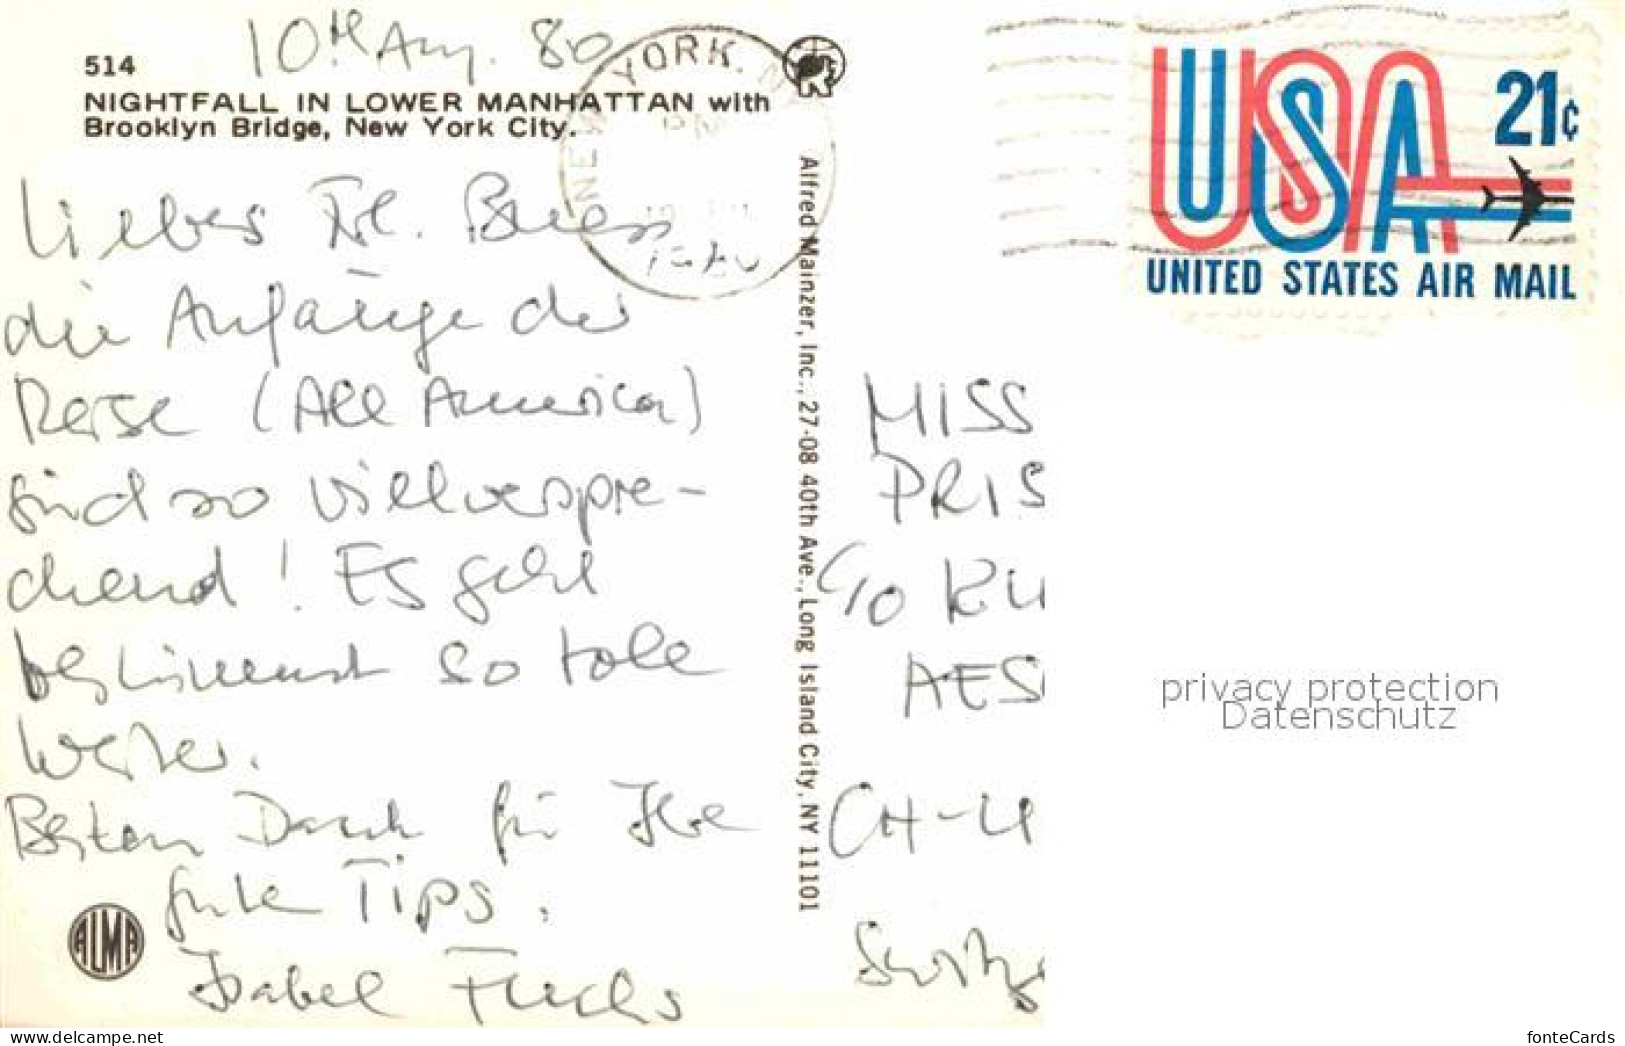 10th Aug. 80
514
NIGHTFALL IN LOWER MANHATTAN with
Brooklyn Bridge, New York City.
NEW YORK, N
PM
1980
Liebes Frl.
die Anfänge der
Reise (All America)
sind so villverspre-
chend! Es geht
bestimmt so tole
weiter.
Besten Dank für Ihre
gute Tips.
Isabel Fuchs
ALMA
Alfred Mainzer, Inc., 27-08 40th Ave., Long Island City, NY 11101
USA 21¢
UNITED STATES AIR MAIL
MISS
PRIS
C/O RU
AES
CH-4
privacy protection
Datenschutz
www.delcampe.net
fonteCards